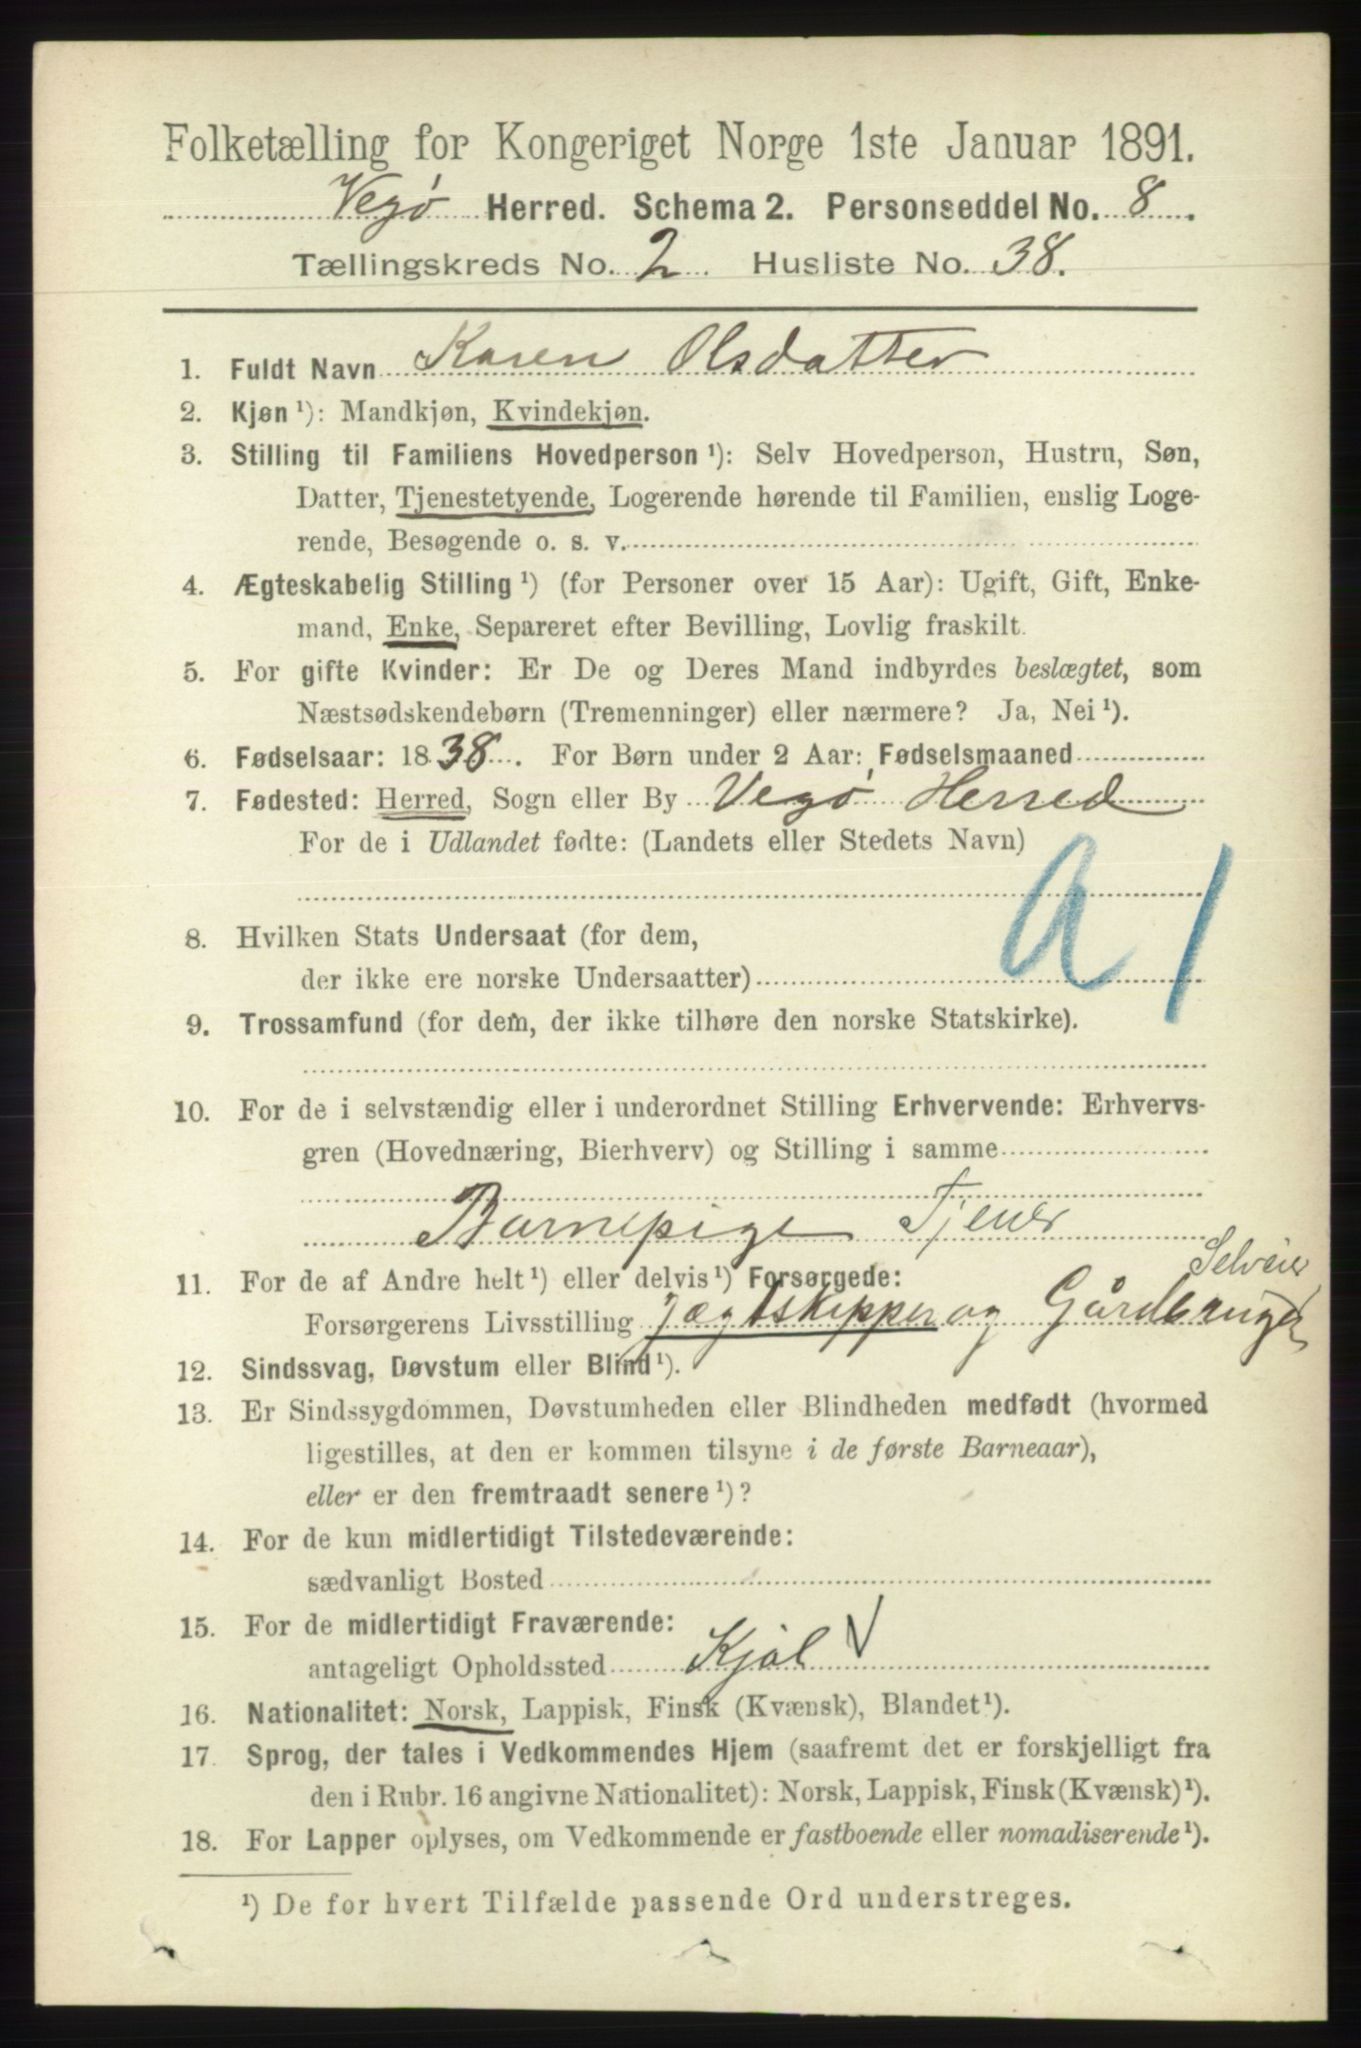 Folketælling for Kongeriget Norge 1ste Januar 1891.
Vegø Herred. Schema 2. Personseddel No. 8.
Tællingskreds No. 2 Husliste No. 38.
1. Fuldt Navn Karen Olsdatter
2. Kjøn ¹): Mandkjøn, Kvindekjøn.
3. Stilling til Familiens Hovedperson ¹): Selv Hovedperson, Hustru, Søn,
Datter, Tjenestetyende, Logerende hørende til Familien, enslig Loge-
rende, Besøgende o. s. v.
4. Ægteskabelig Stilling ¹) (for Personer over 15 Aar): Ugift, Gift, Enke-
mand, Enke, Separeret efter Bevilling, Lovlig fraskilt.
5. For gifte Kvinder: Er De og Deres Mand indbyrdes beslægtet, som
Næstsødskendebørn (Tremenninger) eller nærmere? Ja, Nei ¹).
6. Fødselsaar: 1838. For Børn under 2 Aar: Fødselsmaaned
7. Fødested: Herred, Sogn eller By Vegø Herred
For de i Udlandet fødte: (Landets eller Stedets Navn)
a 1
8. Hvilken Stats Undersaat (for dem,
der ikke ere norske Undersaatter)
9. Trossamfund (for dem, der ikke tilhøre den norske Statskirke).
10. For de i selvstændig eller i underordnet Stilling Erhvervende: Erhvervs-
gren (Hovednæring, Bierhverv) og Stilling i samme
Barnepige Tjener
Selveier
11. For de af Andre helt ¹) eller delvis ¹) Forsørgede:
Forsørgerens Livsstilling Jægtskipper og Gårdbruger
12. Sindssvag, Døvstum eller Blind ¹).
13. Er Sindssygdommen, Døvstumheden eller Blindheden medfødt (hvormed
ligestilles, at den er kommen tilsyne i de første Barneaar),
eller er den fremtraadt senere ¹)?
14. For de kun midlertidigt Tilstedeværende:
sædvanligt Bosted
15. For de midlertidigt Fraværende:
antageligt Opholdssted Kjøl V
16. Nationalitet: Norsk, Lappisk, Finsk (Kvænsk), Blandet ¹).
17. Sprog, der tales i Vedkommendes Hjem (saafremt det er forskjelligt fra
den i Rubr. 16 angivne Nationalitet): Norsk, Lappisk, Finsk (Kvænsk) ¹).
18. For Lapper oplyses, om Vedkommende er fastboende eller nomadiserende ¹).
¹) De for hvert Tilfælde passende Ord understreges.